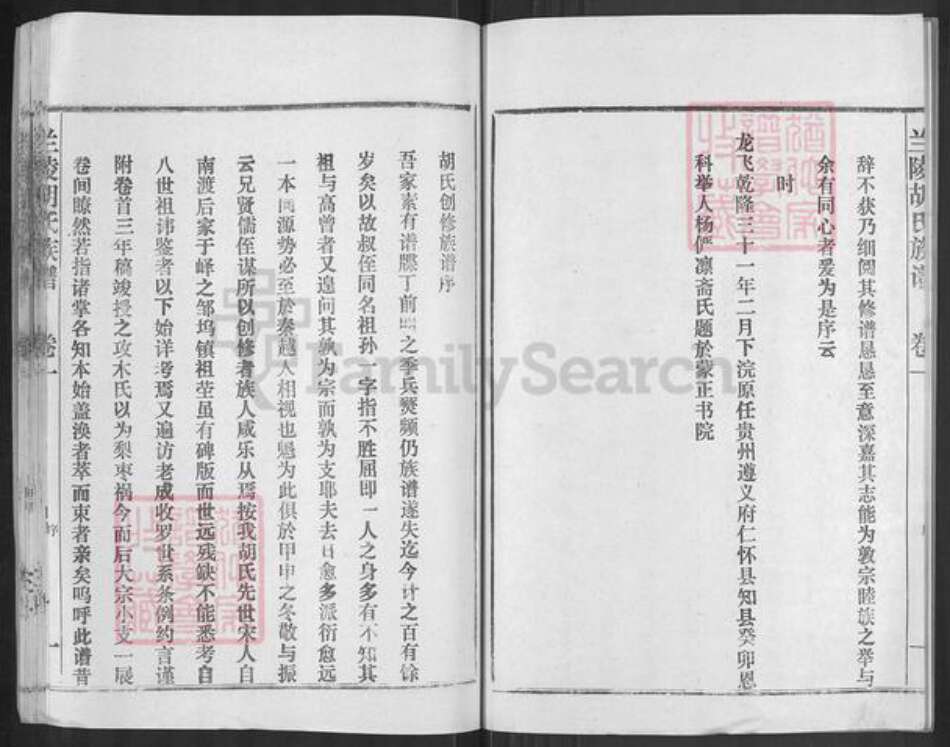 兰陵胡氏族谱 卷一
辞不获乃细阅其修谱恳恳至意深嘉其志能为敦宗睦族之举与
余有同心者爰为是序云
时
龙飞乾隆三十一年二月下浣原任贵州遵义府仁怀县知县癸卯恩
科举人杨俨凛斋氏题於蒙正书院
胡氏创修族谱序
吾家素有谱牒丁前明之季兵燹频仍族谱遂失迄今计之百有馀
岁矣以故叔侄同名祖孙一字指不胜屈即一人之身多有不知其
祖与高曾者又遑问其孰为宗而孰为支耶夫去日愈多派衍愈远
一本同源势必至於秦越人相视也鬯为此惧於甲申之冬敬与振
云兄贤儒侄谋所以创修者族人咸乐从焉按我胡氏先世宋人自
南渡后家于峄之邹坞镇祖茔虽有碑版而世远残缺不能悉考自
八世祖讳鉴者以下始详考焉又遍访老成收罗世系条例约言谨
附卷首三年稿竣授之攻木氏以为梨枣祸今而后大宗小支一展
卷间瞭然若指诸掌各知本始盖涣者萃而束者亲矣呜呼此谱昔
兰陵胡氏族谱 卷一 序 一
FamilySearch